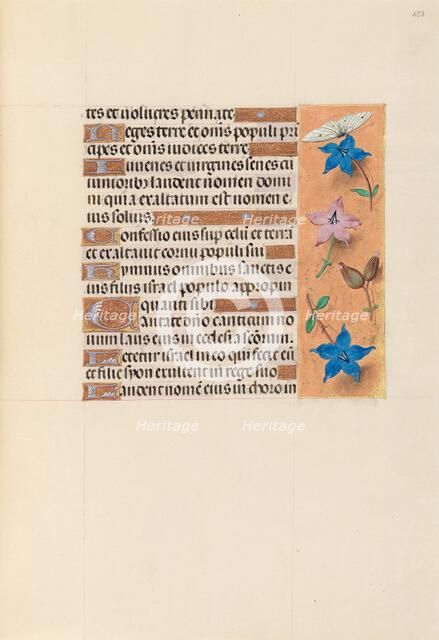 453
tes et volucres pennate.
Reges terre et om̄s populi prī
cipes et om̄s iudices terre.
Iuuenes et uirgines senes cū
iunioribus laudent nomen domi
ni quia exaltatum est nomen e
ius solius.
Confessio eius sup celū et terrā
et exaltauit cornu populi sui
Hymnus omnibus sanctis e
ius filiis isrl populo appropin
quanti sibi
Cantate dn̄o canticum no
uum laus eius in ecclesia scōrum.
Letetur isrl in eo qui fecit eū
et filie syon exultent in rege suo
Laudent nomē eius in choro in
Heritage Images
Heritage Images
Heritage Images
Heritage Images
Heritage Images
Heritage Images